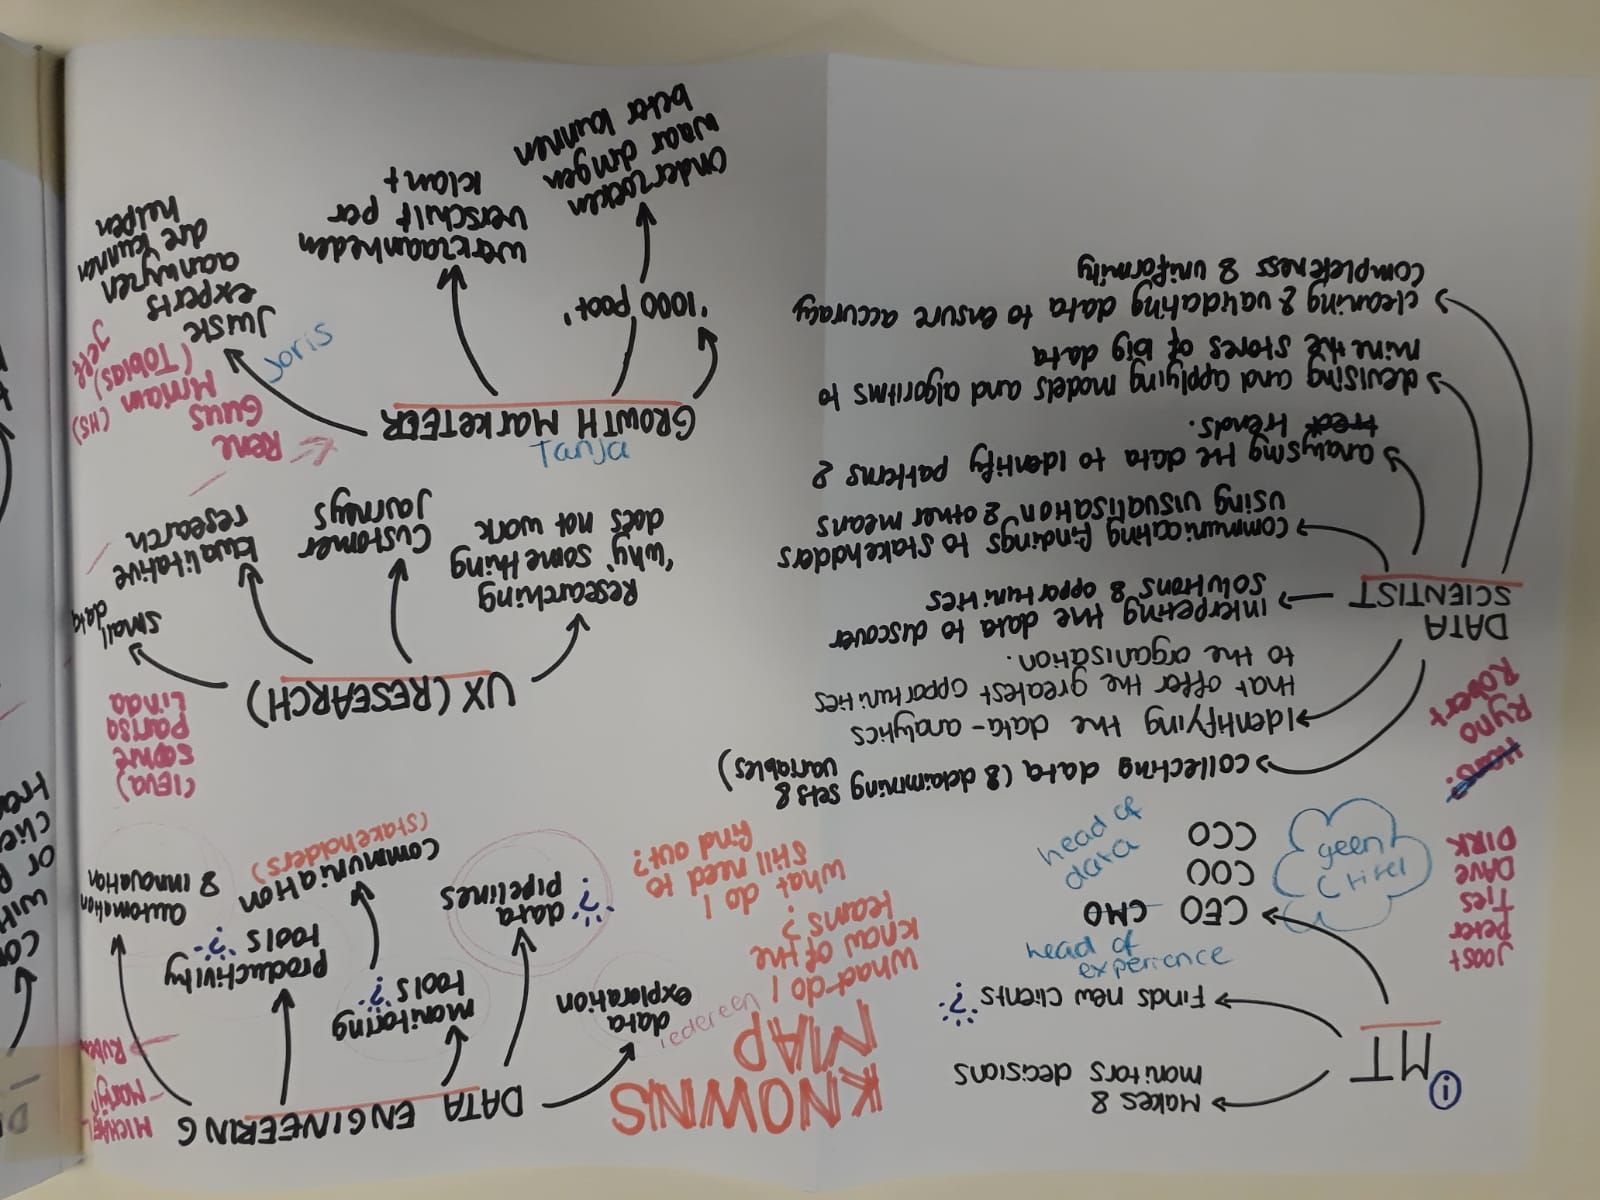 KNOWNS
MAP
What do I
know of the
teams?
What do I
still need to
find out?
iedereen
MT
i
Makes &
monitors decisions
Finds new clients
?
CEO CMO
COO
CCO
head of
experience
head of
data
geen
titel
Joost
Peter
Ties
Dave
DIRK
DATA
SCIENTIST
Ryno
Robert
collecting data (& determining sets &
variables)
Identifying the data-analytics
that offer the greatest opportunities
to the organisation.
interpeting the data to discover
solutions & opportunities
communicating findings to stakeholders
using visualisation & other means
analysing the data to identify patterns &
trends.
devising and applying models and algorithms to
mine the stores of big data
cleaning & validating data to ensure accuracy
completeness & uniformity
DATA ENGINEERING
MICHAEL
data
exploration
data
pipelines
?
monitoring
tools
?
communication
(stakeholders)
productivity
tools
?
automation
& innovation
UX (RESEARCH)
(IEVA)
Sophie
Parisa
Linda
Researching
'why' something
does not work
Customer
Journeys
kwalitative
research
small
data
GROWTH MARKETEER
Tanja
Joris
Rene
Guus
Mirriam (HS)
(Tobias)
Jeff
'1000 poot'
onderzoeken
waar dingen
beter kunnen
werkzaamheden
verschilt per
klant
Juiste
experts
aanwijzen
die kunnen
helpen